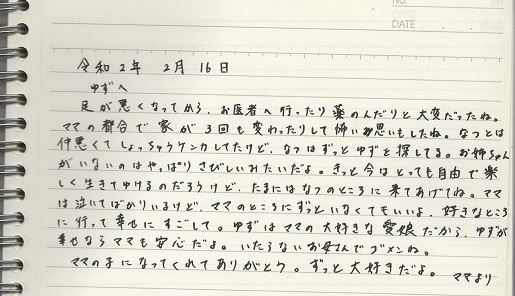 NO.
DATE
令和2年 2月 16日
ゆずへ
足が悪くなってから、お医者へ行ったり薬のんだりと大変だったね。
ママの都合で家が3回も変わったりして怖い思いもしたね。なつとは
仲悪くてしょっちゅうケンカしてたけど、なつはずっとゆずを探してる。お姉ちゃん
がいないのはやっぱりさびしいみたいだよ。きっと今はとっても自由で楽
しく生きてゆけるのだろうけど、たまにはなつのところに来てあげてね。ママ
は泣いてばかりいるけど、ママのところにずっといなくてもいいよ、好きなところ
に行って幸せにすごして。ゆずはママの大好きな愛娘だから、ゆずが
幸せならママも安心だよ。いたらないお母さんでゴメンね。
ママの子になってくれてありがとう。ずっと大好きだよ。 ママより